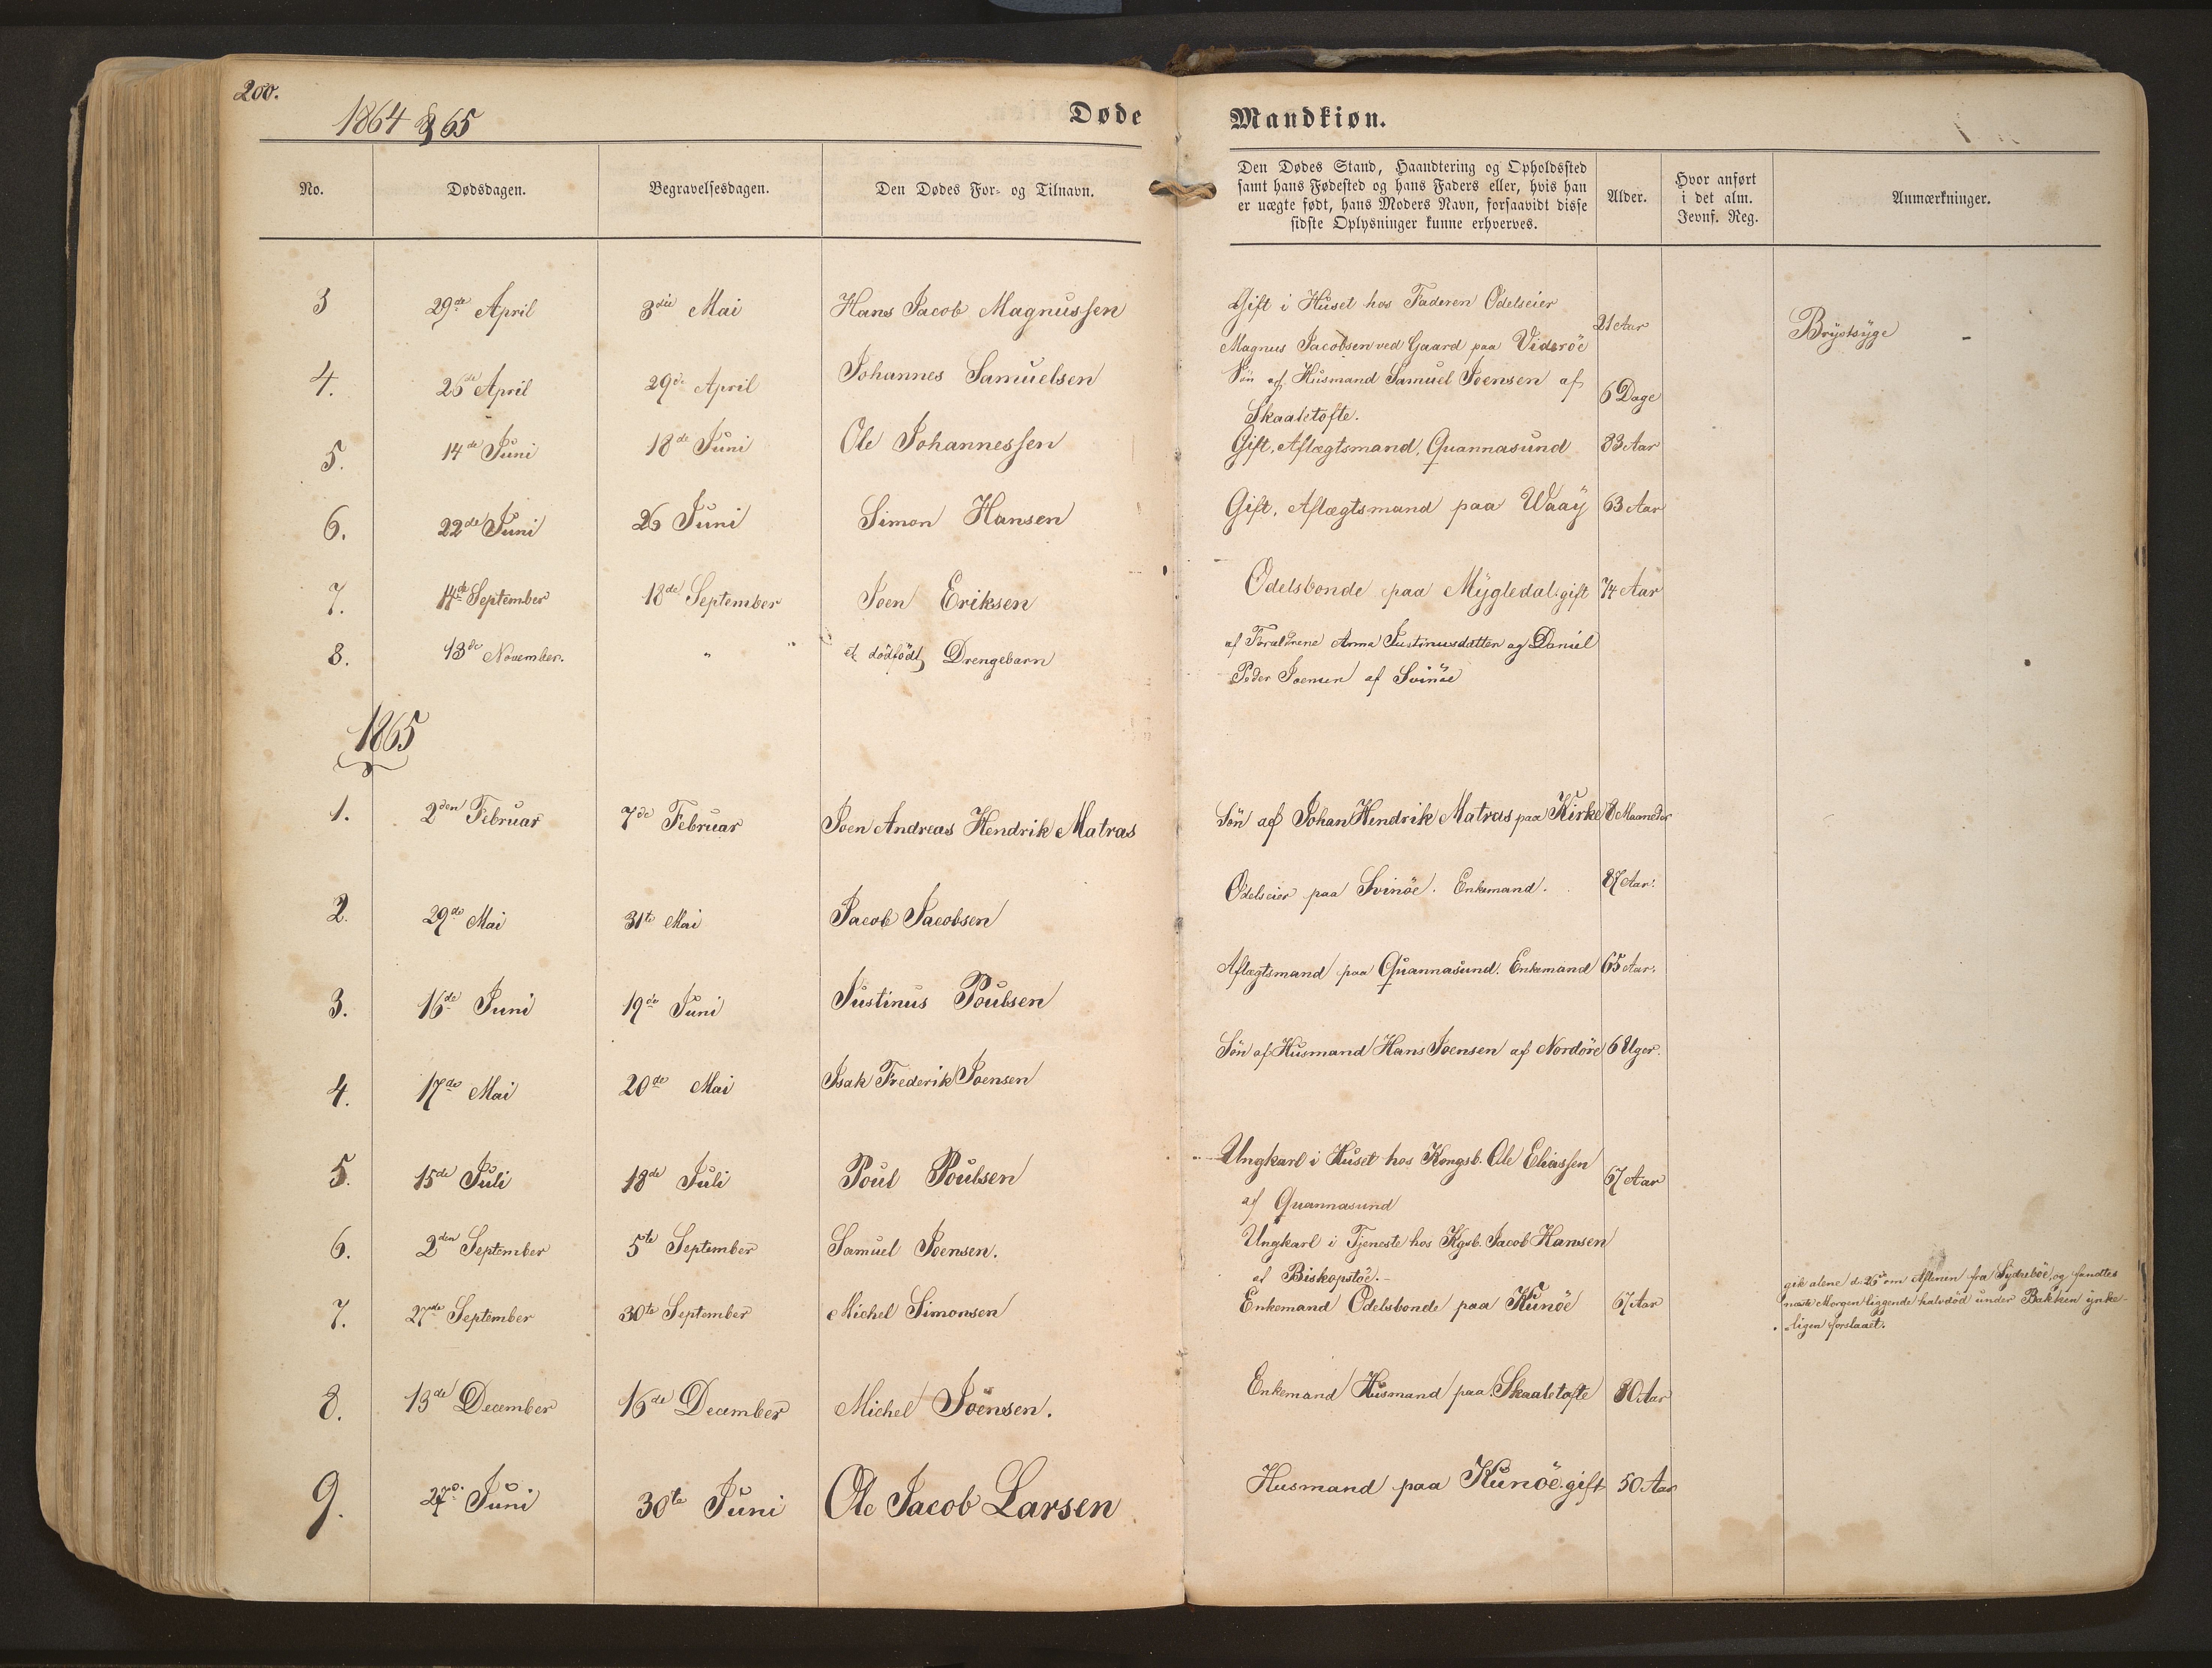 200.
1864 & 65
Døde Mandkiøn.
No. Dødsdagen. Begravelsesdagen. Den Dødes For- og Tilnavn.
Den Dødes Stand, Haandtering og Opholdssted
samt hans Fødested og hans Faders eller, hvis han
er uægte født, hans Moders Navn, forsaavidt disse
sidste Oplysninger kunne erhverves.
Alder.
Hvor anført
i det alm.
Jevnf. Reg.
Anmærkninger.
3 29de April 3die Mai Hans Jacob Magnussen Gift i Huset hos Faderen Odelseier
Magnus Jacobsen ved Gaard paa Viderøe 21 Aar Brystsyge
4. 26de April 29de April Johannes Samuelsen Søn af Husmand Samuel Joensen af
Skaaletofte. 6 Dage
5. 14de Juni 18de Juni Ole Johannessen Gift, Aflægtsmand, Quannasund 83 Aar
6. 22de Juni 26 Juni Simon Hansen Gift, Aflægtsmand paa Waaÿ 63 Aar
7. 14de September 18de September Joen Eriksen Odelsbonde paa Mÿgledal gift 74 Aar
8. 13de November. " et dödfödt Drengebarn af Forældrene Anna Justinusdatter og Daniel
Peder Joensen af Svinöe
1865
1. 2den Februar 7de Februar Joen Andreas Hendrik Matras Søn af Johan Hendrik Matras paa Kirke 8 Maaneder
2. 29de Mai 31te Mai Jacob Jacobsen Odelseier paa Svinöe. Enkemand. 87 Aar.
3. 16de Juni 19de Juni Justinus Poulsen Aflægtsmand paa Quannasund. Enkemand 65 Aar.
4. 17de Mai 20de Mai Isak Frederik Joensen Søn af Husmand Hans Joensen af Nordöre 6 Uger.
5. 15de Juli 18de Juli Poul Poulsen Ungkarl i Huset hos Kongsb. Ole Eliassen
af Quannasund 67 Aar
6. 2den September 5te September Samuel Joensen. Ungkarl i Tjeneste hos Kgsb. Jacob Hansen
af Biskopstöe.
7. 27de September 30te September Michel Simonsen Enkemand Odelsbonde paa Kunöe 67 Aar
gik alene d. 26de om Aftenen fra Sydreböe, og fandtes
næste Morgen liggende halvdöd under Bakken ynke-
ligen forslaaet.
8. 13de December 16de December Michel Joensen. Enkemand Husmand paa Skaaletofte 80 Aar
9. 27de Juni 30te Juni Ole Jacob Larsen Husmand paa Kunöe. gift 50 Aar